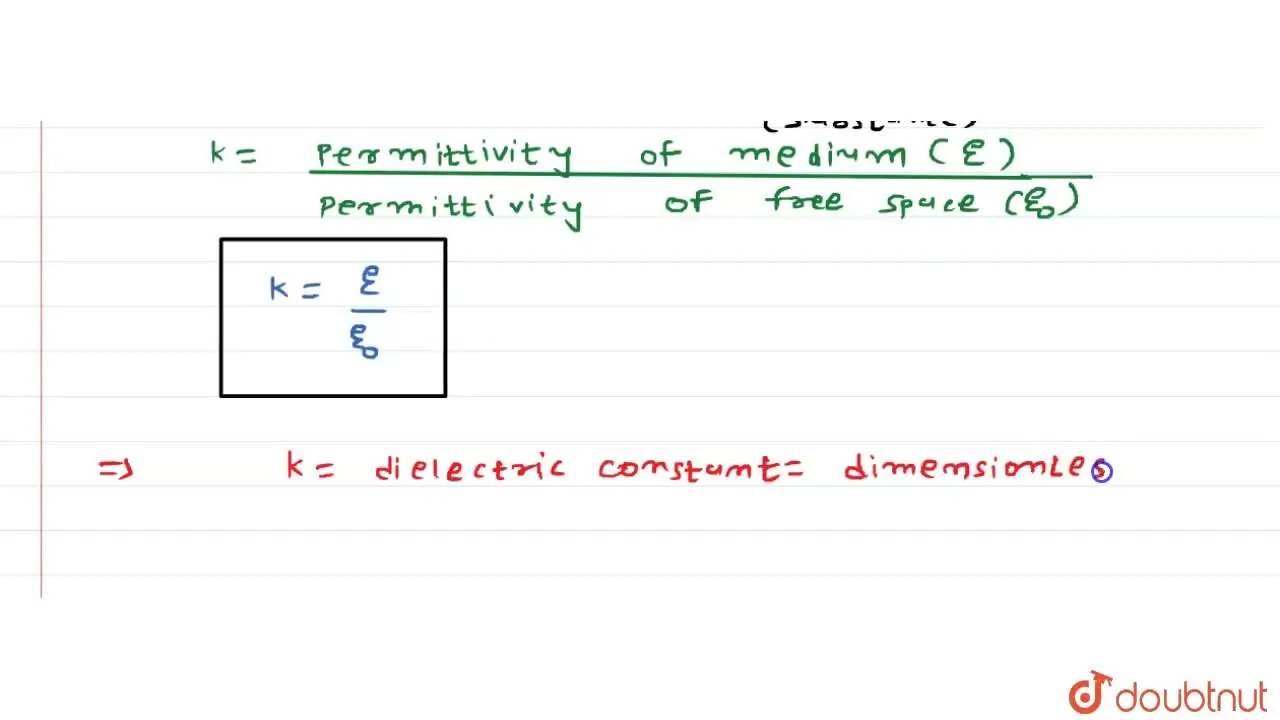 k = permittivity of medium (ε)
permittivity of free space (ε0)
k = ε
ε0
=> k = dielectric constant = dimensionLes
doubtnut